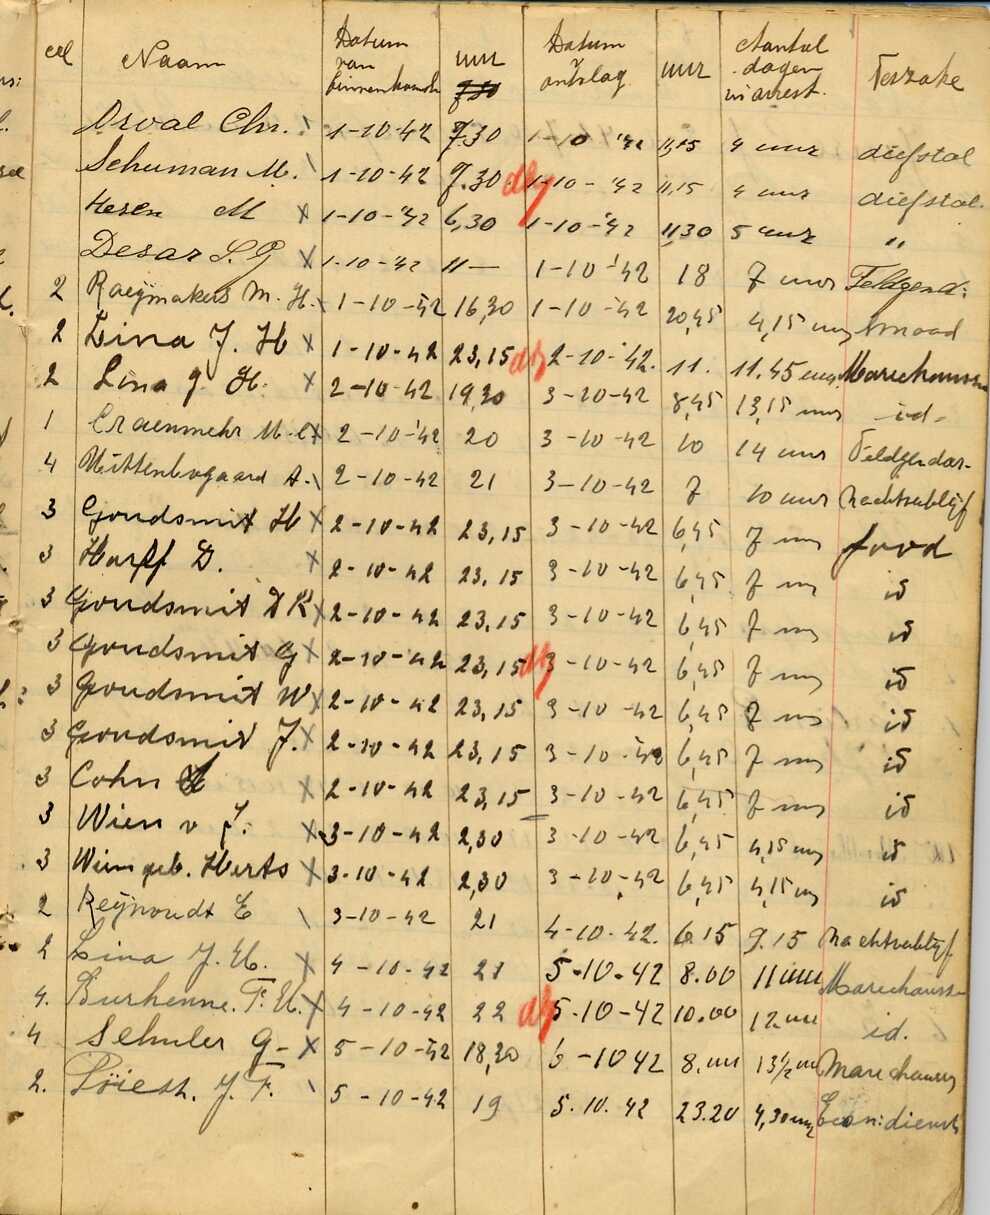 cel Naam Datum van binnenkomst uur Datum ontslag uur Aantal dagen in arrest. Terzake
Orval Chr. \ 1-10-42 7.30 1-10 '42 11,15 4 uur diefstal
Schuman M. \ 1-10-42 7.30 1-10-'42 11,15 4 uur diefstal.
M x 1-10-'42 6,30 1-10-'42 11,30 5 uur "
Desar S. G x 1-10-'42 11— 1-10-'42 18 7 uur Feldgend:
2 Raeymakers M. H. \ 1-10-42 16,30 1-10-'42 20,45 4,15 uur
2 Lina J. H x 1-10-42 23,15 2-10-'42. 11. 11.45 uur Marechaussee
2 Lina J. H. x 2-10-42 19,30 3-10-42 8,45 13,15 uur id-
1 x 2-10-'42 20 3-10-42 10 14 uur Feldgendar-
4 Uittenbogaard A. \ 2-10-42 21 3-10-42 7 10 uur nachtverblijf
3 Goudsmit H x 2-10-42 23,15 3-10-42 6,45 7 uur Jood
3 D. x 2-10-42 23,15 3-10-42 6,45 7 uur id
3 Goudsmit D K x 2-10-42 23,15 3-10-42 6,45 7 uur id
3 Goudsmit G x 2-10-42 23,15 3-10-42 6,45 7 uur id
3 Goudsmit W x 2-10-42 23,15 3-10-42 6,45 7 uur id
3 Goudsmit J. x 2-10-42 23,15 3-10-42 6,45 7 uur id
3 Cohn x 2-10-42 23,15 3-10-42 6,45 7 uur id
3 Wien v J. x 3-10-42 2,30 3-10-42 6,45 4,15 uur id
3 Wien geb. Herts x 3-10-42 2,30 3-10-42 6,45 4,15 uur id
2 Reynoudt E \ 3-10-42 21 4-10-42. 6.15 9.15 nachtverblijf.
2 Lina J. H. x 4-10-42 21 5-10-42 8.00 11 uur Marechaussee
4. Burhenne. F. H. x 4-10-42 22 5-10-42 10.00 12 uur id.
4 Schuler G- x 5-10-42 18,30 6-10 42 8. uur 13 1/2 uur Marechaussee
2. J. F. \ 5-10-42 19 5.10.42 23.20 4,30 uur Econ: dienst